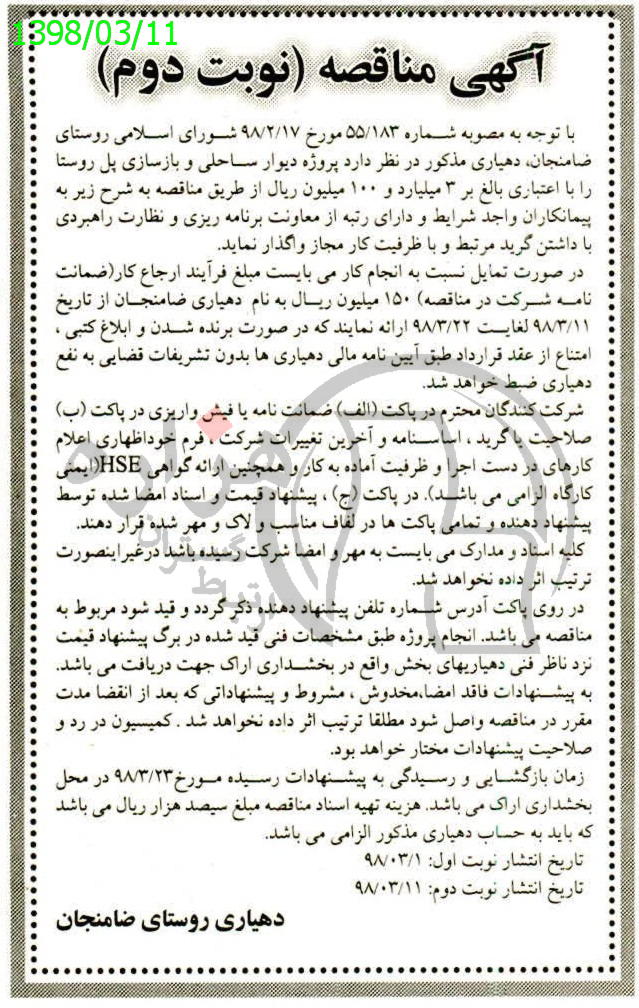 1398/03/11
آگهی مناقصه (نوبت دوم)
با توجه به مصوبه شماره ۵۵/۱۸۳ مورخ ۹۸/۲/۱۷ شورای اسلامی روستای
ضامنجان، دهیاری مذکور در نظر دارد پروژه دیوار ساحلی و بازسازی پل روستا
را با اعتباری بالغ بر ۳ میلیارد و ۱۰۰ میلیون ریال از طریق مناقصه به شرح زیر به
پیمانکاران واجد شرایط و دارای رتبه از معاونت برنامه ریزی و نظارت راهبردی
با داشتن گرید مرتبط و با ظرفیت کار مجاز واگذار نماید.
در صورت تمایل نسبت به انجام کار می بایست مبلغ فرآیند ارجاع کار(ضمانت
نامه شرکت در مناقصه) ۱۵۰ میلیون ریال به نام دهیاری ضامنجان از تاریخ
۹۸/۳/۱۱ لغایت ۹۸/۳/۲۲ ارائه نمایند که در صورت برنده شدن و ابلاغ کتبی ،
امتناع از عقد قرارداد طبق آیین نامه مالی دهیاری ها بدون تشریفات قضایی به نفع
دهیاری ضبط خواهد شد.
شرکت کنندگان محترم در پاکت (الف) ضمانت نامه یا فیش واریزی در پاکت (ب)
صلاحیت یا گرید ، اساسنامه و آخرین تغییرات شرکت ، فرم خوداظهاری اعلام
کارهای در دست اجرا و ظرفیت آماده به کار و همچنین ارائه گواهی HSE(ایمنی
کارگاه الزامی می باشد). در پاکت (ج) ، پیشنهاد قیمت و اسناد امضا شده توسط
پیشنهاد دهنده و تمامی پاکت ها در لفاف مناسب و لاک و مهر شده قرار دهند.
کلیه اسناد و مدارک می بایست به مهر و امضا شرکت رسیده باشد درغیراینصورت
ترتیب اثر داده نخواهد شد.
در روی پاکت آدرس شماره تلفن پیشنهاد دهنده ذکر گردد و قید شود مربوط به
مناقصه می باشد. انجام پروژه طبق مشخصات فنی قید شده در برگ پیشنهاد قیمت
نزد ناظر فنی دهیاریهای بخش واقع در بخشداری اراک جهت دریافت می باشد.
به پیشنهادات فاقد امضا،مخدوش ، مشروط و پیشنهاداتی که بعد از انقضا مدت
مقرر در مناقصه واصل شود مطلقا ترتیب اثر داده نخواهد شد . کمیسیون در رد و
صلاحیت پیشنهادات مختار خواهد بود.
زمان بازگشایی و رسیدگی به پیشنهادات رسیده مورخ۹۸/۳/۲۳ در محل
بخشداری اراک می باشد. هزینه تهیه اسناد مناقصه مبلغ سیصد هزار ریال می باشد
که باید به حساب دهیاری مذکور الزامی می باشد.
تاریخ انتشار نوبت اول: ۹۸/۰۳/۱
تاریخ انتشار نوبت دوم: ۹۸/۰۳/۱۱
دهیاری روستای ضامنجان